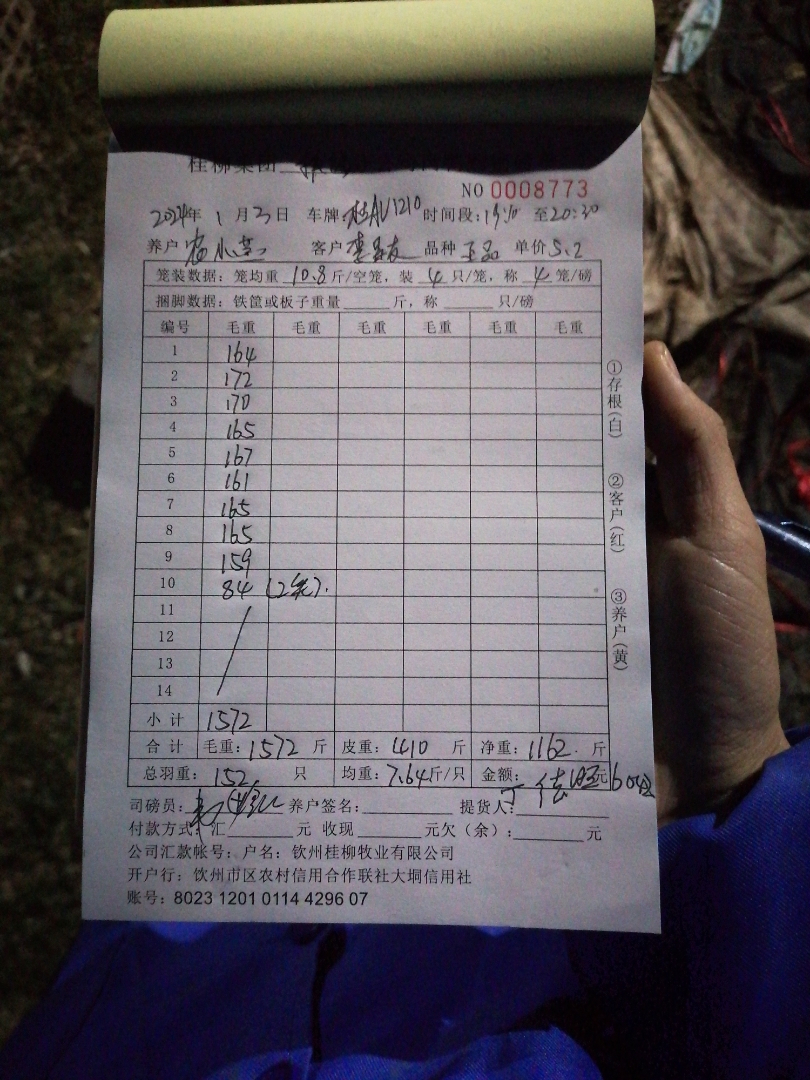 桂柳集团
NO 0008773
2024年 1月3日 车牌 桂AU1210 时间段: 至20:30
养户 客户 品种 正品 单价5.2
笼装数据：笼均重 10.8 斤/空笼，装 4 只/笼，称 4 笼/磅
捆脚数据：铁筐或板子重量 斤，称 只/磅
编号 毛重 毛重 毛重 毛重 毛重 毛重
1 164
2 172
3 170
4 165
5 167
6 161
7 165
8 165
9 159
10 84 (2笼).
11
12
13
14
小计 1572
合计 毛重：1572 斤 皮重：410 斤 净重：1162. 斤
总羽重：152 只 均重：7.64斤/只 金额： 元
司磅员： 养户签名： 提货人：
付款方式：汇 元 收现 元欠（余）： 元
公司汇款帐号：户名：钦州桂柳牧业有限公司
开户行：钦州市区农村信用合作联社大垌信用社
账号：8023 1201 0114 4296 07
①存根(白)
②客户(红)
③养户(黄)